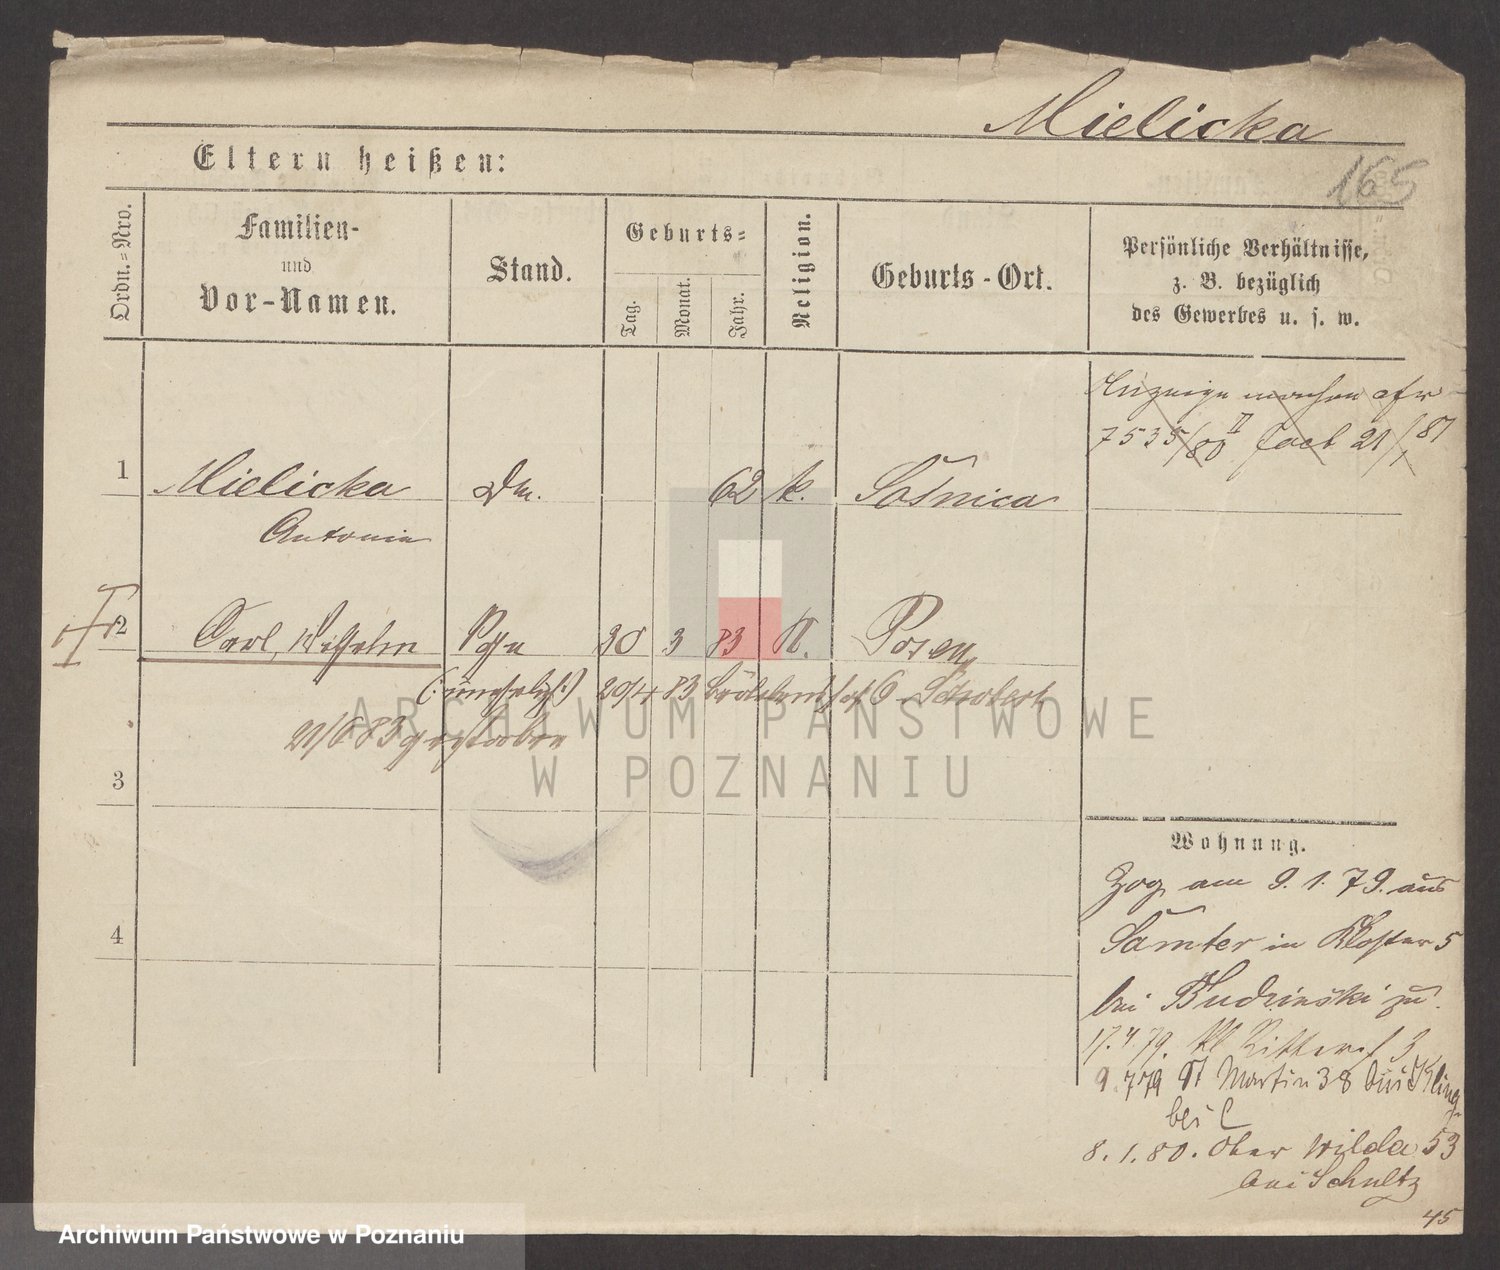 Mielicka
165
Eltern heißen:
Ordn.=Nro.
Familien-
und
Vor-Namen.
Stand.
Geburts=
Tag.
Monat.
Jahr.
Religion.
Geburts-Ort.
Persönliche Verhältnisse,
z. B. bezüglich
des Gewerbes u. s. w.
Anzeige machen
7535/80 II 21/1 81
1 Mielicka Dm. 62 k. Sosnica
Antonia
2 Carl, Wilhelm 30 3 83 K. Posen
(: unehelich :) 20/4 83
21/6 83 gestorben
3
4
Wohnung.
Zog am 9. 1. 79. aus
Samter in Kloster 5
bei Budzinski zu.
17. 4 79. kl Ritterst 3
9. 7 79 St Martin 38 bei Kling
bei
8. 1. 80. Ober Wilda 53
bei Schultz
45
ARCHIWUM PAŃSTWOWE
W POZNANIU
Archiwum Państwowe w Poznaniu